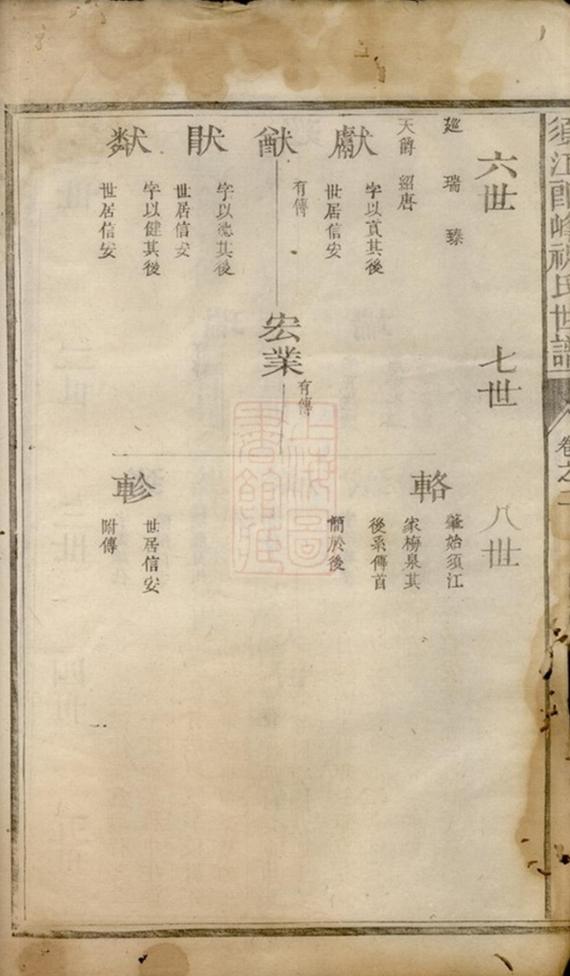 須江郎峰祝氏世譜
卷之二
六世
廵瑞臻
天爵紹唐
獻
字以貢其後
世居信安
猷
有傳
䏁
字以德其後
世居信安
獜
字以健其後
世居信安
七世
宏業
有傳
八世
輅
肇始須江
家梅泉其
後系傳首
簡於後
軫
世居信安
附傳
上海圖書館藏